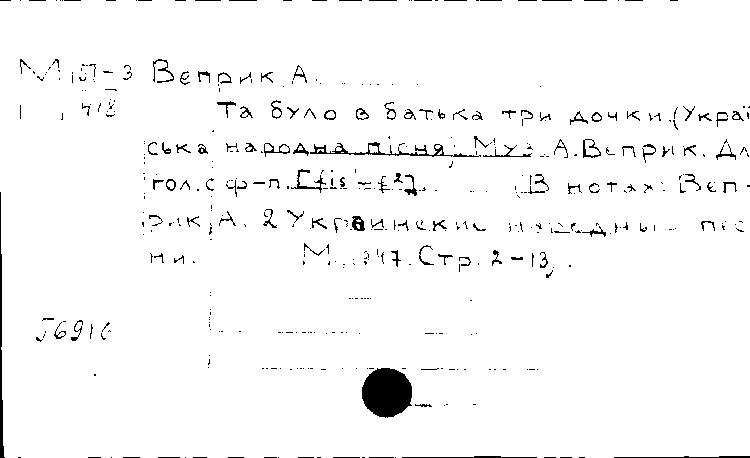 М 151-3 Веприк А.
418 Та було в батька три дочки. (Украї
ська народна пісня, Муз. А. Веприк. Дл
гол. с ф-п. [fis'-f²]. (В нотах: Веп-
рик А. 2 Украинские народные пес
ни. М., 1947. Стр. 2-13.